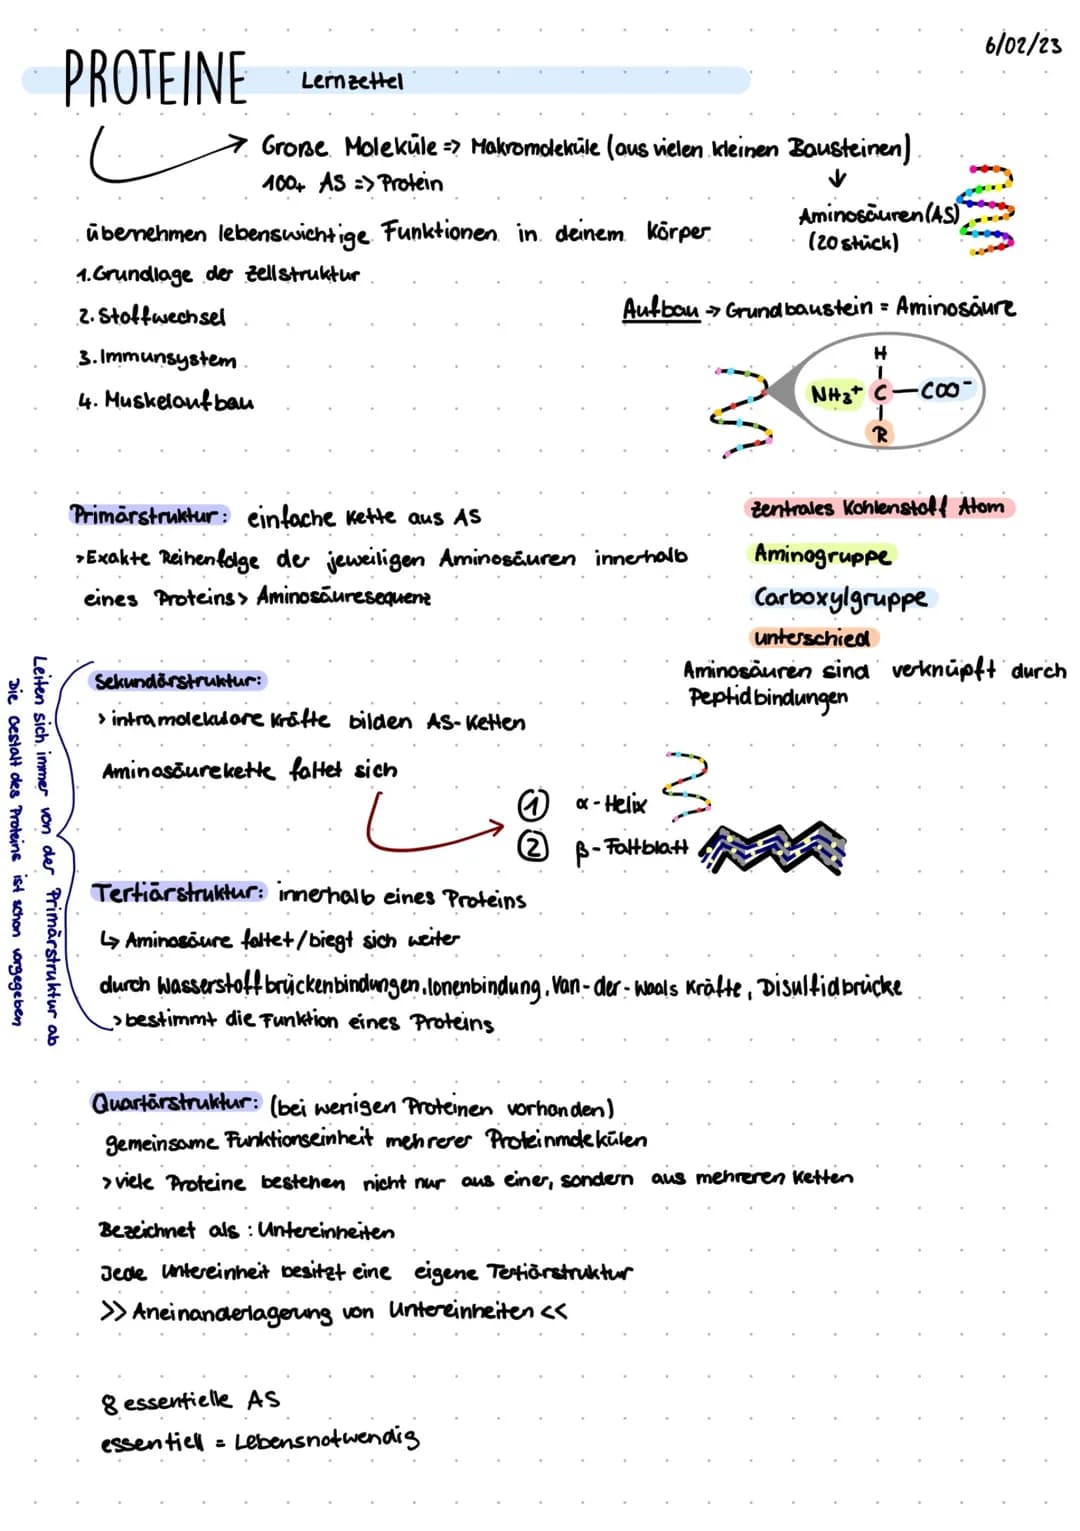 6/02/23
PROTEINE Lernzettel
Große Moleküle => Makromoleküle (aus vielen kleinen Bausteinen)
100+ AS => Protein
Aminosäuren (AS)
(20 stück)
übernehmen lebenswichtige Funktionen in deinem Körper
1. Grundlage der Zellstruktur
2. Stoffwechsel
3. Immunsystem
4. Muskelaufbau
Aufbau → Grundbaustein = Aminosäure
H
NH₃⁺ C — COO⁻
R
zentrales Kohlenstoff Atom
Aminogruppe
Carboxylgruppe
unterschied
Aminosäuren sind verknüpft durch
Peptidbindungen
Primärstruktur: einfache Kette aus AS
> Exakte Reihenfolge der jeweiligen Aminosäuren innerhalb
eines Proteins > Aminosäuresequenz
Leiten sich immer von der Primärstruktur ab
Die Gestalt des Proteins ist schon vorgegeben
Sekundärstruktur:
> intramolekulare Kräfte bilden AS-Ketten
Aminosäurekette faltet sich
① α-Helix
② β-Faltblatt
Tertiärstruktur: innerhalb eines Proteins
↳ Aminosäure faltet/biegt sich weiter
durch Wasserstoffbrückenbindungen, Ionenbindung, Van-der-Waals Kräfte, Disulfidbrücke
> bestimmt die Funktion eines Proteins
Quartärstruktur: (bei wenigen Proteinen vorhanden)
gemeinsame Funktionseinheit mehrerer Proteinmolekülen
> viele Proteine bestehen nicht nur aus einer, sondern aus mehreren Ketten
Bezeichnet als: Untereinheiten
Jede Untereinheit besitzt eine eigene Tertiärstruktur
>> Aneinanderlagerung von Untereinheiten <<
8 essentielle AS
essentiell = Lebensnotwendig